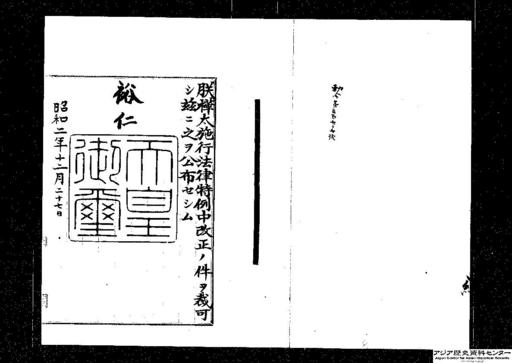 朕樺太施行法律特例中改正ノ件ヲ裁可
シ茲ニ之ヲ公布セシム
裕仁
天皇
御璽
昭和二年十二月二十七日
アジア歴史資料センター
Japan Center for Asian Historical Records